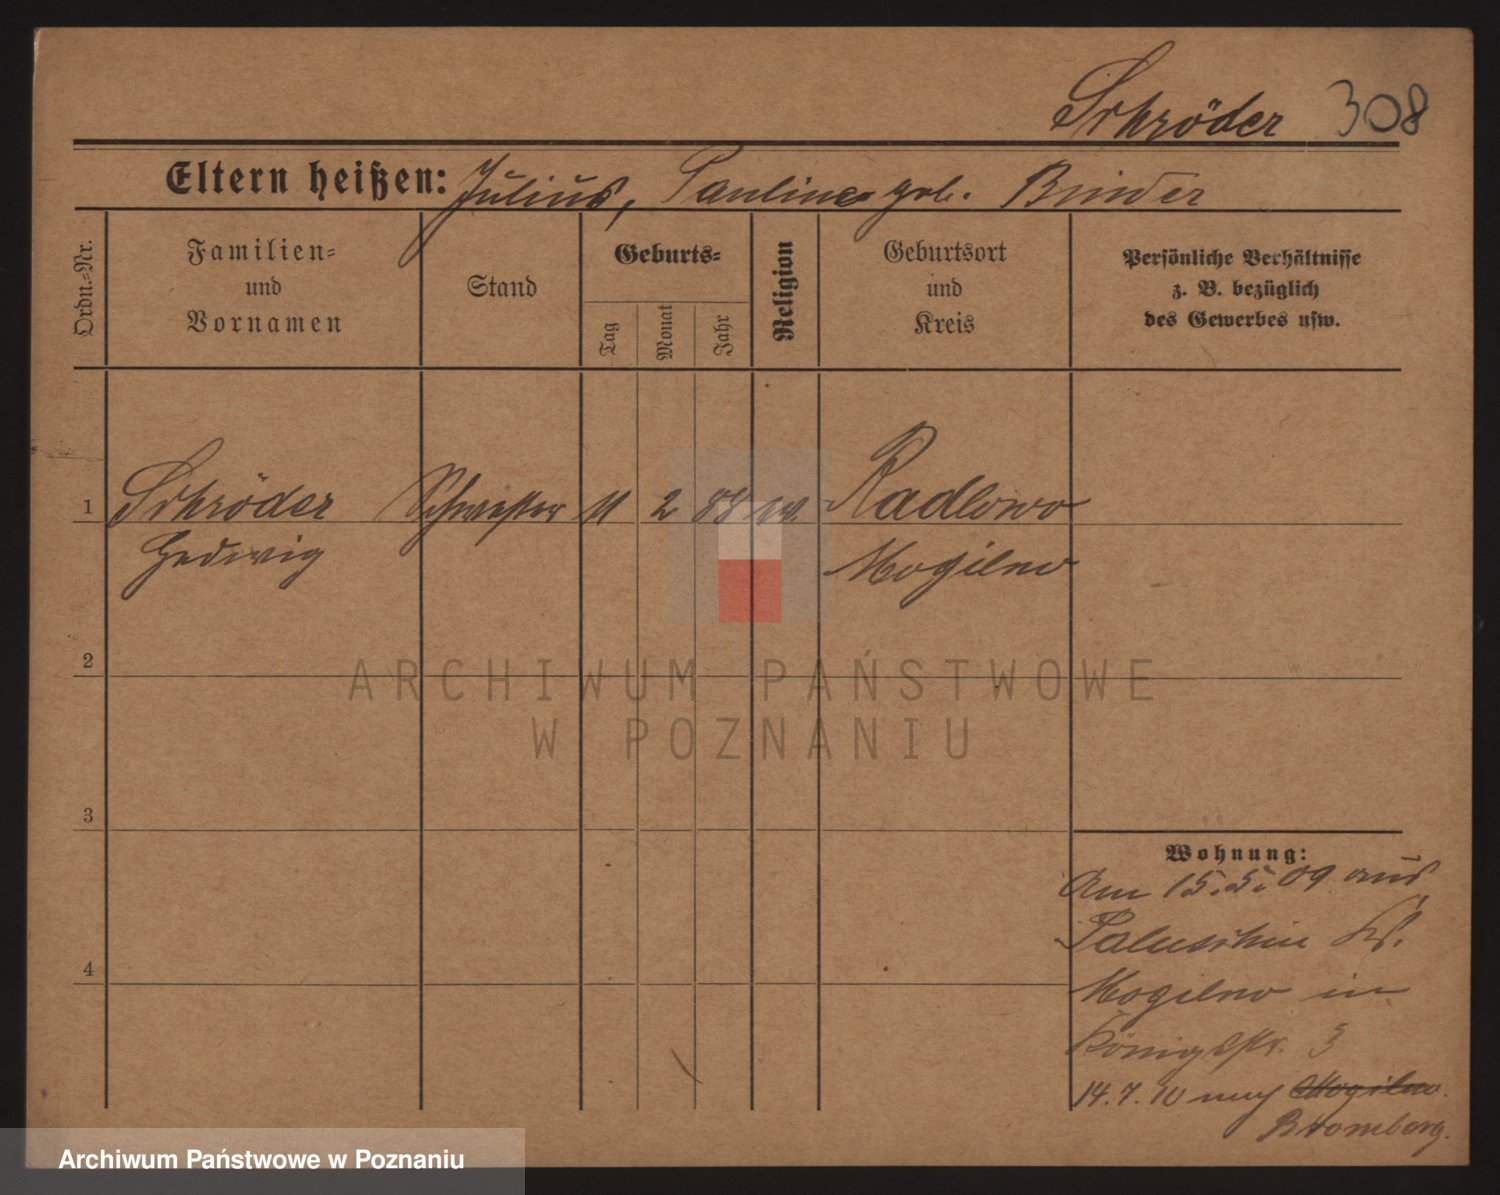 Schröder 308
Eltern heißen: Julius, Pauline geb. Binder
Ordn.-Nr.
Familien-
und
Vornamen
Stand
Geburts-
Tag
Monat
Jahr
Religion
Geburtsort
und
Kreis
Persönliche Verhältnisse
z. B. bezüglich
des Gewerbes usw.
1 Schröder Schwester 11 2 88 ev. Radlowo
Hedwig Mogilno
2
3
4
Wohnung:
Am 15.5.09 aus
Paluschin Kr.
Mogilno in
Königstr. 3
14.7.10 nach Mogilno.
Bromberg.
ARCHIWUM PAŃSTWOWE
W POZNANIU
Archiwum Państwowe w Poznaniu